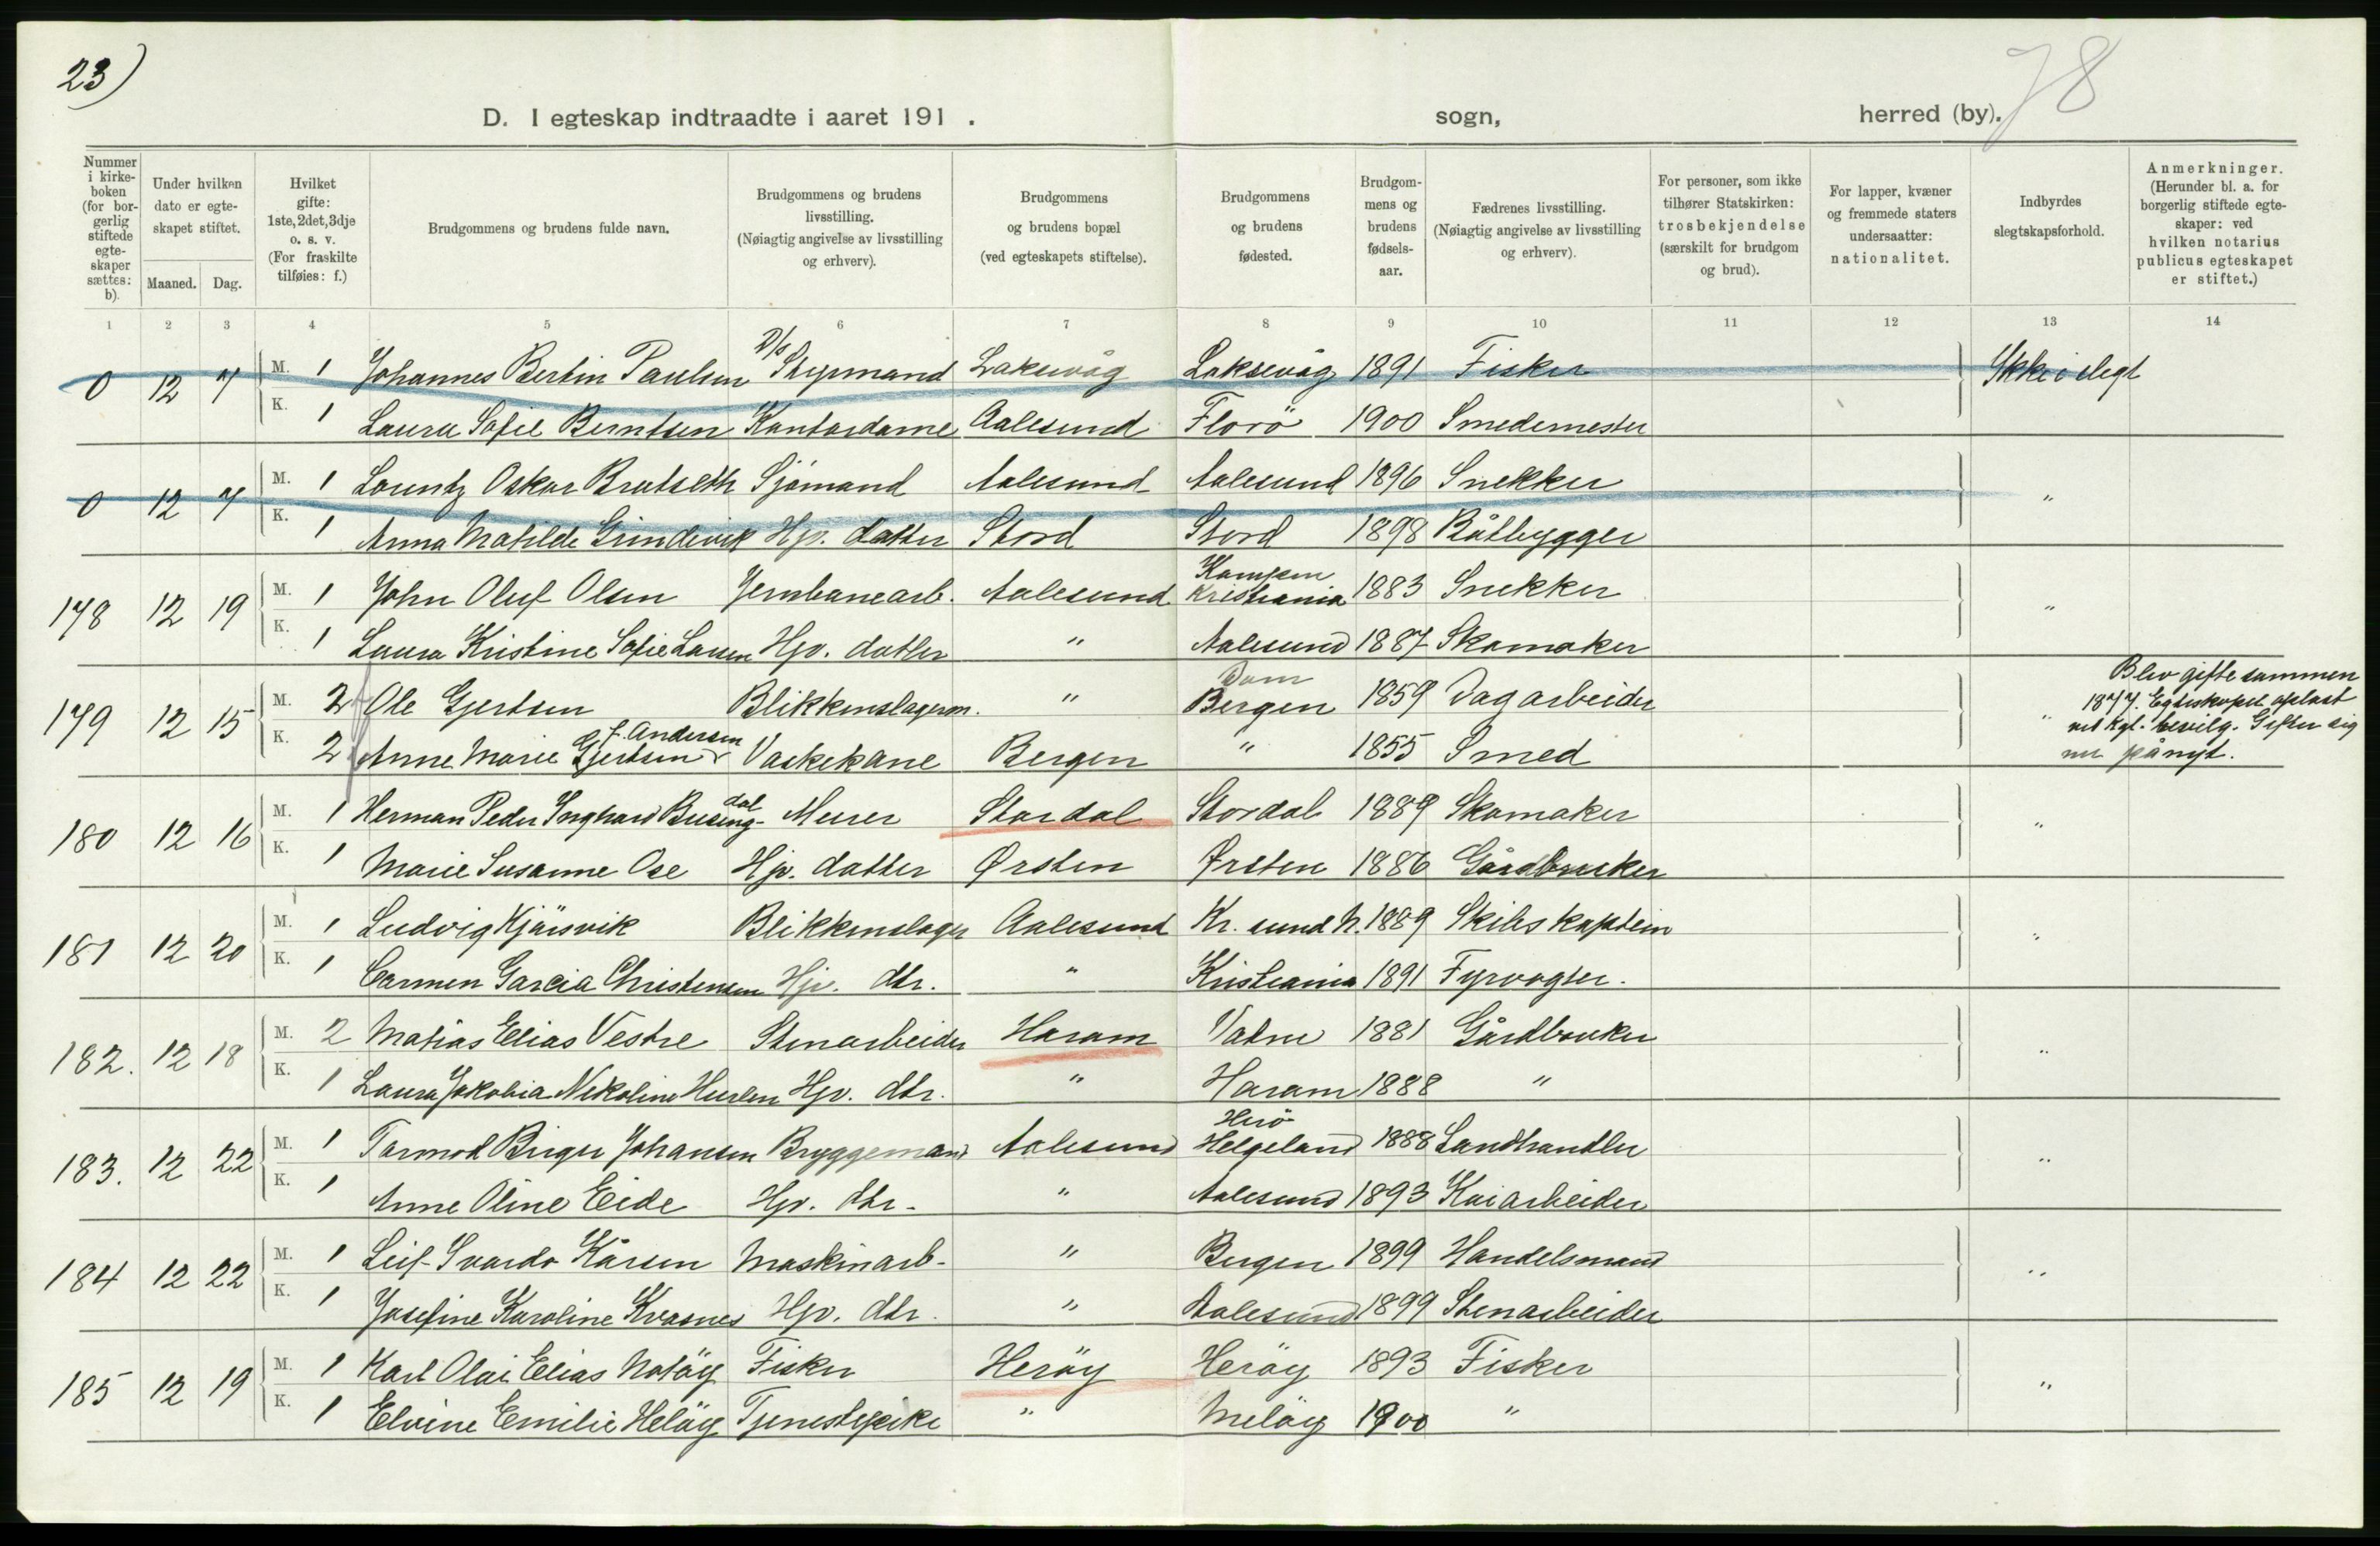 23)
78
D. I egteskap indtraadte i aaret 191 . sogn, herred (by).
Nummer i kirke-boken (for bor-gerlig stiftede egte-skaper sættes: b).
Under hvilken dato er egte-skapet stiftet.
Maaned. Dag.
Hvilket gifte: 1ste, 2det, 3dje o. s. v. (For fraskilte tilføies: f.)
Brudgommens og brudens fulde navn.
Brudgommens og brudens livsstilling. (Nøiagtig angivelse av livsstilling og erhverv).
Brudgommens og brudens bopæl (ved egteskapets stiftelse).
Brudgommens og brudens fødested.
Brudgom-mens og brudens fødsels-aar.
Fædrenes livsstilling. (Nøiagtig angivelse av livsstilling og erhverv).
For personer, som ikke tilhører Statskirken: trosbekjendelse (særskilt for brudgom og brud).
For lapper, kvæner og fremmede staters undersaatter: nationalitet.
Indbyrdes slegtskapsforhold.
Anmerkninger. (Herunder bl. a. for borgerlig stiftede egte-skaper: ved hvilken notarius publicus egteskapet er stiftet.)
1 2 3 4 5 6 7 8 9 10 11 12 13 14
0 12 7 M. 1 Johannes Bertin Paulsen D/s Styrmand Laksevåg Laksevåg 1891 Fisker Ikke i slegt
K. 1 Laura Sofie Berntsen Kontordame Aalesund Florö 1900 Smedemester
0 12 7 M. 1 Lorentz Oskar Brutseth Sjömand Aalesund Aalesund 1896 Snekker "
K. 1 Anna Matilde Grindevik Hjv. datter Stord Stord 1898 Båtbygger
178 12 19 M. 1 John Oluf Olsen Jernbanearb. Aalesund Kampen Kristiania 1883 Snekker "
K. 1 Laura Kristine Sofie Larsen Hjv. datter " Aalesund 1887 Skomaker
179 12 15 M. 2 Ole Gjertsen Blikkenslagerm. " Dom Bergen 1859 Dagarbeider "
K. 2 Anne Marie Gjertsen f. Andersen Vaskekone Bergen " 1855 Smed
Blev gifte sammen
1877. Egteskapet opløst
ved kgl. bevilg. Gifter sig
nu på nyt.
180 12 16 M. 1 Herman Peder Inghard Busengdal Murer Stordal Stordal 1889 Skomaker "
K. 1 Marie Susanne Ose Hjv. datter Ørsten Ørsten 1886 Gårdbruker
181 12 20 M. 1 Ludvig Kjärsvik Blikkenslager Aalesund Kr. sund N. 1889 Skibskaptein "
K. 1 Carmen Garcia Christensen Hjv. dtr. " Kristiania 1891 Fyrvogter.
182. 12 18 M. 2 Matias Elias Vestre Stenarbeider Haram Vatne 1881 Gårdbruker "
K. 1 Laura Jakobia Nikoline Hurlen Hjv. dtr. " Haram 1888 "
183. 12 22 M. 1 Tormod Birger Johansen Bryggemand Aalesund Herö Helgeland 1888 Landhandler "
K. 1 Anne Oline Eide Hjv. dtr. " Aalesund 1893 Kaiarbeider
184 12 22 M. 1 Leif Svardo Kårsen Maskinarb. " Bergen 1899 Handelsmand "
K. 1 Josefine Karoline Kvasnes Hjv. dtr. " Aalesund 1899 Stenarbeider
185 12 19 M. 1 Karl Olai Elias Notöy Fisker Heröy Heröy 1893 Fisker "
K. 1 Elvine Emilie Helöy Tjenestepike " Melöy 1900 "